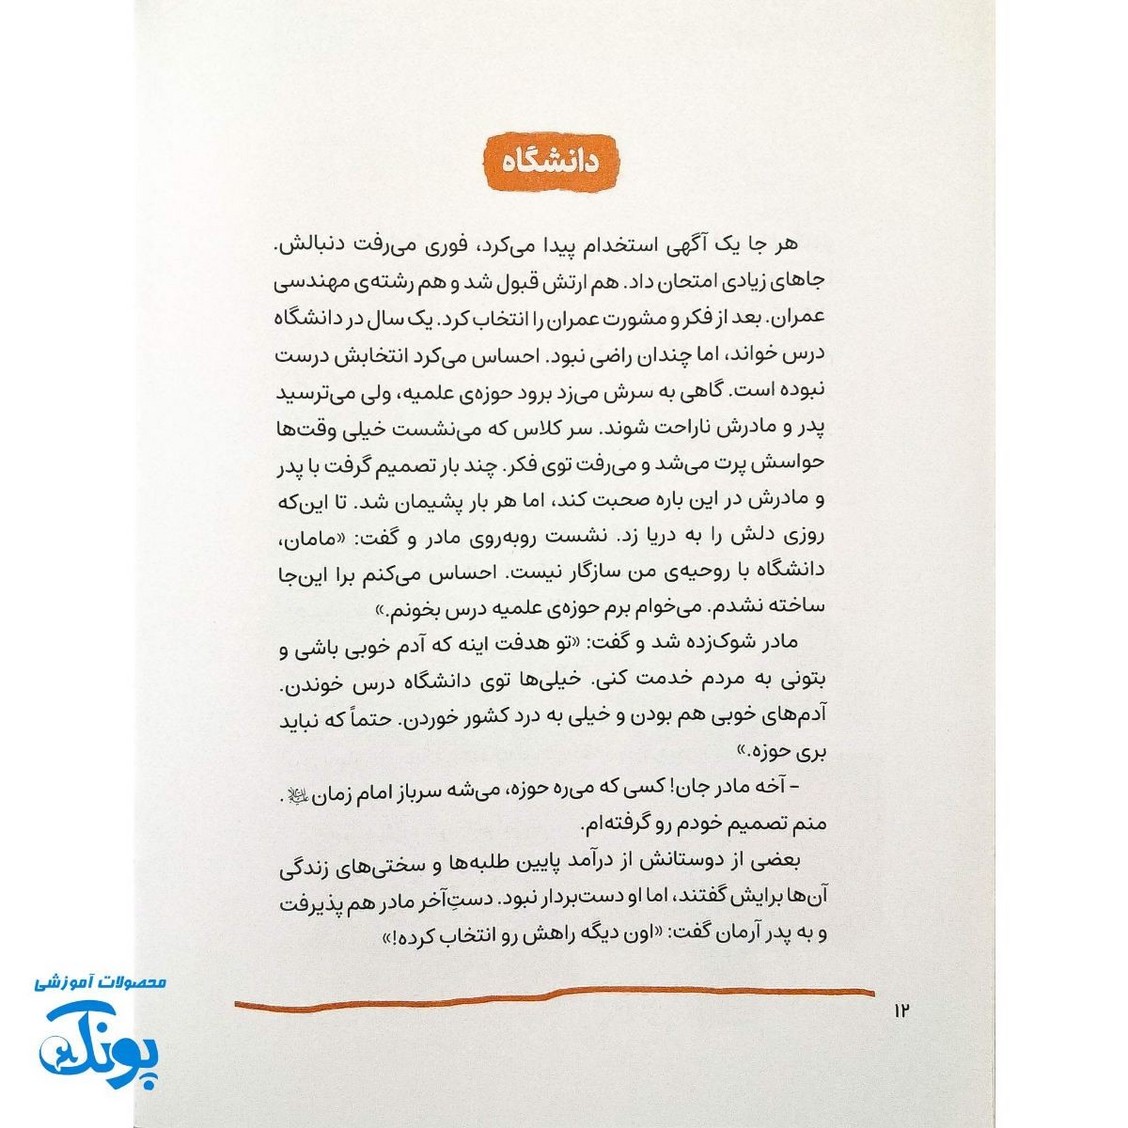 دانشگاه
هر جا یک آگهی استخدام پیدا می‌کرد، فوری می‌رفت دنبالش.
جاهای زیادی امتحان داد. هم ارتش قبول شد و هم رشته‌ی مهندسی
عمران. بعد از فکر و مشورت عمران را انتخاب کرد. یک سال در دانشگاه
درس خواند، اما چندان راضی نبود. احساس می‌کرد انتخابش درست
نبوده است. گاهی به سرش می‌زد برود حوزه‌ی علمیه، ولی می‌ترسید
پدر و مادرش ناراحت شوند. سر کلاس که می‌نشست خیلی وقت‌ها
حواسش پرت می‌شد و می‌رفت توی فکر. چند بار تصمیم گرفت با پدر
و مادرش در این باره صحبت کند، اما هر بار پشیمان شد. تا این‌که
روزی دلش را به دریا زد. نشست روبه‌روی مادر و گفت: «مامان،
دانشگاه با روحیه‌ی من سازگار نیست. احساس می‌کنم برا این‌جا
ساخته نشدم. می‌خوام برم حوزه‌ی علمیه درس بخونم.»
مادر شوک‌زده شد و گفت: «تو هدفت اینه که آدم خوبی باشی و
بتونی به مردم خدمت کنی. خیلی‌ها توی دانشگاه درس خوندن.
آدم‌های خوبی هم بودن و خیلی به درد کشور خوردن. حتماً که نباید
بری حوزه.»
- آخه مادر جان! کسی که می‌ره حوزه، می‌شه سرباز امام زمان .
منم تصمیم خودم رو گرفته‌ام.
بعضی از دوستانش از درآمد پایین طلبه‌ها و سختی‌های زندگی
آن‌ها برایش گفتند، اما او دست‌بردار نبود. دستِ‌آخر مادر هم پذیرفت
و به پدر آرمان گفت: «اون دیگه راهش رو انتخاب کرده!»
۱۲
محصولات آموزشی
پونک